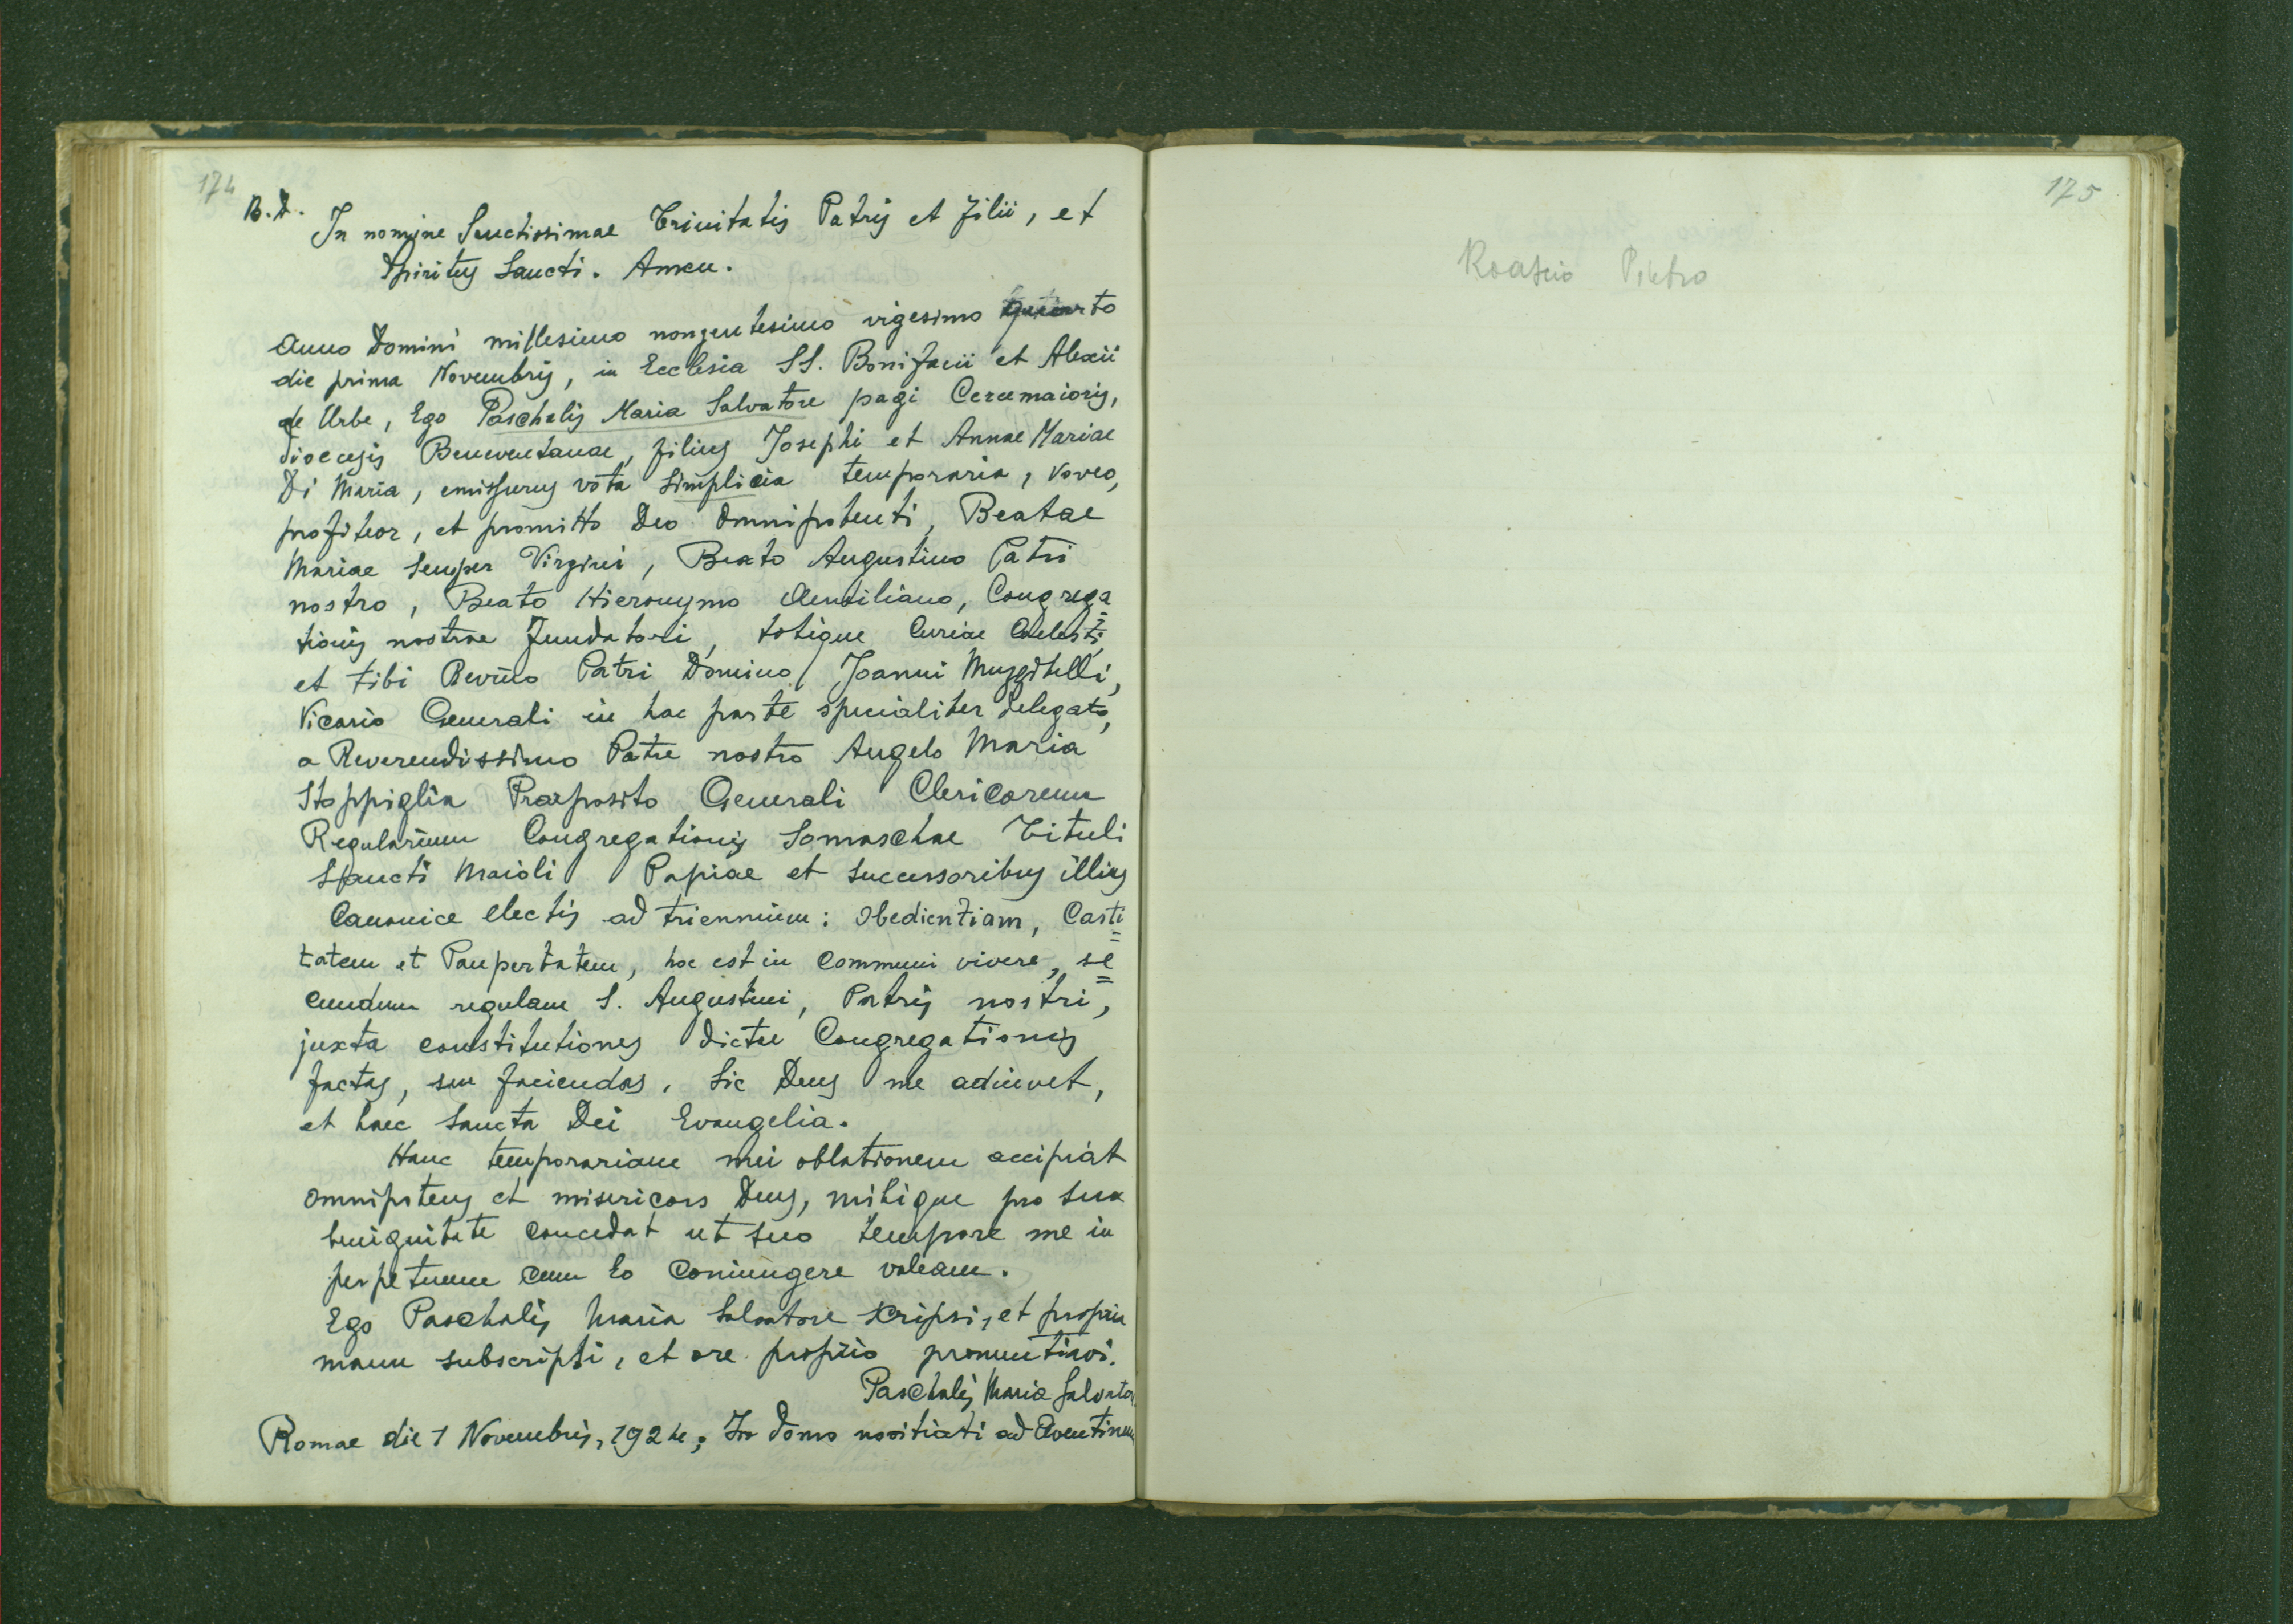 174
B.D.
In nomine Sanctissimae Trinitatis Patris et Filii, et
Spiritus Sancti. Amen.
Anno Domini millesimo nongentesimo vigesimo quarto
die prima Novembris, in Ecclesia SS. Bonifacii et Alexii
de Urbe, Ego Paschalis Maria Salvatore pagi Cercemaioris,
dioecesis Beneventanae, filius Josephi et Annae Mariae
Di Maria, emissurus vota simplicia temporaria, voveo,
profiteor, et promitto Deo Omnipotenti, Beatae
Mariae semper Virgini, Beato Augustino Patri
nostro, Beato Hieronymo Aemiliano, Congrega=
tionis nostrae Fundatori, totique Curiae Coelesti,
et tibi Revm̃o Patri Domino Joanni Muzzitelli,
Vicario Generali in hac parte specialiter delegato,
a Reverendissimo Patre nostro Angelo Maria
Stoppiglia Praeposito Generali Clericorum
Regularium Congregationis Somaschae Tituli
Sancti Maioli Papiae et successoribus illius
Canonice electis ad triennium: obedientiam, Casti=
tatem et Paupertatem, hoc est in communi vivere, se=
cundum regulam S. Augustini, Patris nostri,
juxta constitutiones dictae Congregationis
factas, seu faciendas. Sic Deus me adiuvet,
et haec sancta Dei Evangelia.
Hanc temporariam mei oblationem accipiat
omnipotens et misericors Deus, mihique pro sua
benignitate concedat ut suo tempore me in
perpetuum cum Eo coniungere valeam.
Ego Paschalis Maria Salvatore scripsi, et propria
manu subscripsi, et ore proprio pronuntiavi.
Paschalis Maria Salvatore
Romae die 1 Novembris, 1924; In domo novitiati ad Aventinum
175
Roascio Pietro